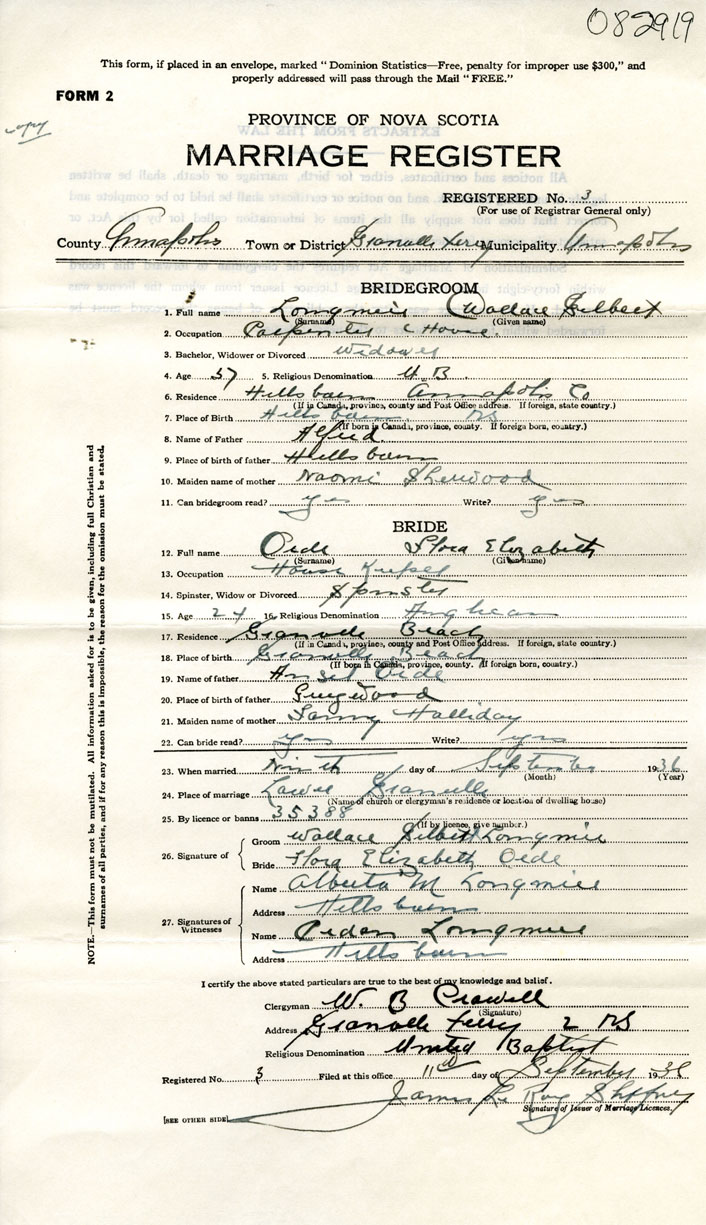 082919
This form, if placed in an envelope, marked “Dominion Statistics—Free, penalty for improper use $300,” and
properly addressed will pass through the Mail “FREE.”
FORM 2
copy
PROVINCE OF NOVA SCOTIA
MARRIAGE REGISTER
REGISTERED No. 3
(For use of Registrar General only)
County Annapolis Town or District Granville Ferry Municipality Annapolis
BRIDEGROOM
1. Full name Longmire Wallace Gilbert
(Surname) (Given name)
2. Occupation Carpenter House.
3. Bachelor, Widower or Divorced Widower
4. Age 57 5. Religious Denomination U. B.
6. Residence Hillsburn Annapolis Co
(If in Canada, province, county and Post Office address. If foreign, state country.)
7. Place of Birth Hillsburn NS
(If born in Canada, province, county. If foreign born, country.)
8. Name of Father Alfred
9. Place of birth of father Hillsburn
10. Maiden name of mother Naomi Sherwood
11. Can bridegroom read? yes Write? yes
BRIDE
12. Full name Oide Flora Elizabeth
(Surname) (Given name)
13. Occupation House Keeper
14. Spinster, Widow or Divorced Spinster
15. Age 24 16. Religious Denomination Anglican
17. Residence Granville Beach
(If in Canada, province, county and Post Office address. If foreign, state country.)
18. Place of birth Granville Beach
(If born in Canada, province, county. If foreign born, country.)
19. Name of father Ansel Oide
20. Place of birth of father
21. Maiden name of mother Fanny Halliday
22. Can bride read? yes Write? yes
23. When married Ninth day of September 1936
(Month) (Year)
24. Place of marriage Lower Granville
(Name of church or clergyman's residence or location of dwelling house)
25. By licence or banns 35388
(If by licence, give number.)
26. Signature of
Groom Wallace Gilbert Longmire
Bride Flora Elizabeth Oide
27. Signatures of Witnesses
Name Alberta M Longmire
Address Hillsburn
Name Longmire
Address Hillsburn
I certify the above stated particulars are true to the best of my knowledge and belief.
Clergyman W. B Crowell
(Signature)
Address Granville Ferry 2 NS
Religious Denomination United Baptist
Registered No. 3 Filed at this office 11th day of September 1936
James Le Roy
Signature of Issuer of Marriage Licences.
[SEE OTHER SIDE]
NOTE.—This form must not be mutilated. All information asked for is to be given, including full Christian and
surnames of all parties, and if for any reason this is impossible, the reason for the omission must be stated.